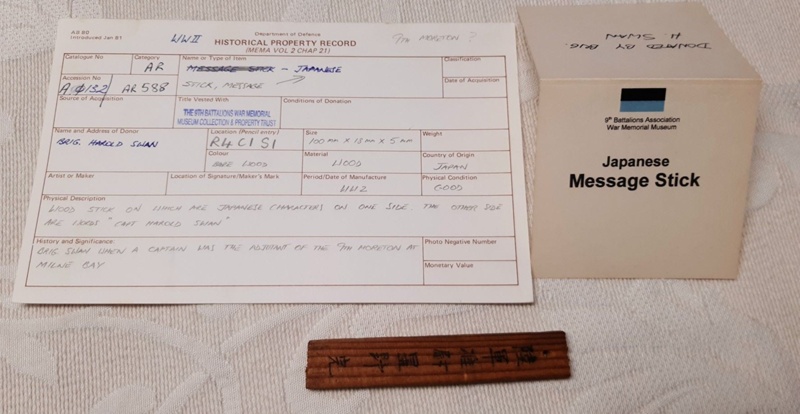 AB 90
Introduced Jan 81
WWII
Department of Defence
HISTORICAL PROPERTY RECORD
(MEMA VOL 2 CHAP 21)
9TH MORETON ?
Catalogue No
Category
AR
Name or Type of Item
MESSAGE STICK - JAPANESE
STICK, MESSAGE
Classification
Date of Acquisition
Accession No
AR 588
Source of Acquisition
Title Vested With
THE 9TH BATTALIONS WAR MEMORIAL
MUSEUM COLLECTION & PROPERTY TRUST
Conditions of Donation
Name and Address of Donor
BRIG. HAROLD SWAN
Location (Pencil entry)
R4 C1 S1
Size
100 mm x 13 mm x 5 mm
Weight
Colour
WOOD
Material
WOOD
Country of Origin
JAPAN
Artist or Maker
Location of Signature/Maker's Mark
Period/Date of Manufacture
WW2
Physical Condition
GOOD
Physical Description
WOOD STICK ON WHICH ARE JAPANESE CHARACTERS ON ONE SIDE. THE OTHER SIDE
ARE WORDS "CAPT HAROLD SWAN"
History and Significance:
BRIG. SWAN WHEN A CAPTAIN WAS THE ADJUTANT OF THE 9TH MORETON AT
MILNE BAY
Photo Negative Number
Monetary Value
DONATED BY BRIG.
H. SWAN
9th Battalions Association
War Memorial Museum
Japanese
Message Stick